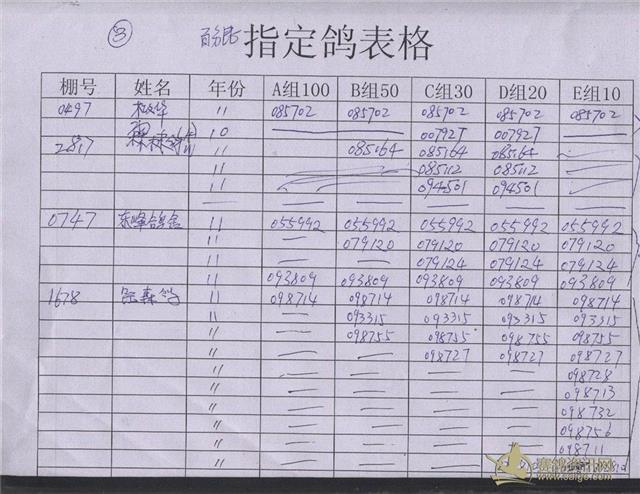 ③ 指定鸽表格
棚号 姓名 年份 A组100 B组50 C组30 D组20 E组10
0497 11 085702 085702 085702 085702 085702
10 — — 007927 007927 —
2817 11 085164 085164 085164
11 085112 085112
11 094501 094501
— — — — — —
0747 东峰 11 055992 055992 055992 055992 055992
11 — 079120 079120 079120 079120
11 — — 079124 079124 079124
11 093809 093809 093809 093809 093809
1678 11 098714 098714 098714 098714 098714
11 — 093315 093315 093315 093315
〃 — 098755 098755 098755 098755
〃 — — 098727 098727 098727
〃 — — — — 098728
〃 — — — — 098713
〃 — — — — 098732
〃 — — — — 098756
〃 — — — — 098711
〃 — — — —
www.saige.com